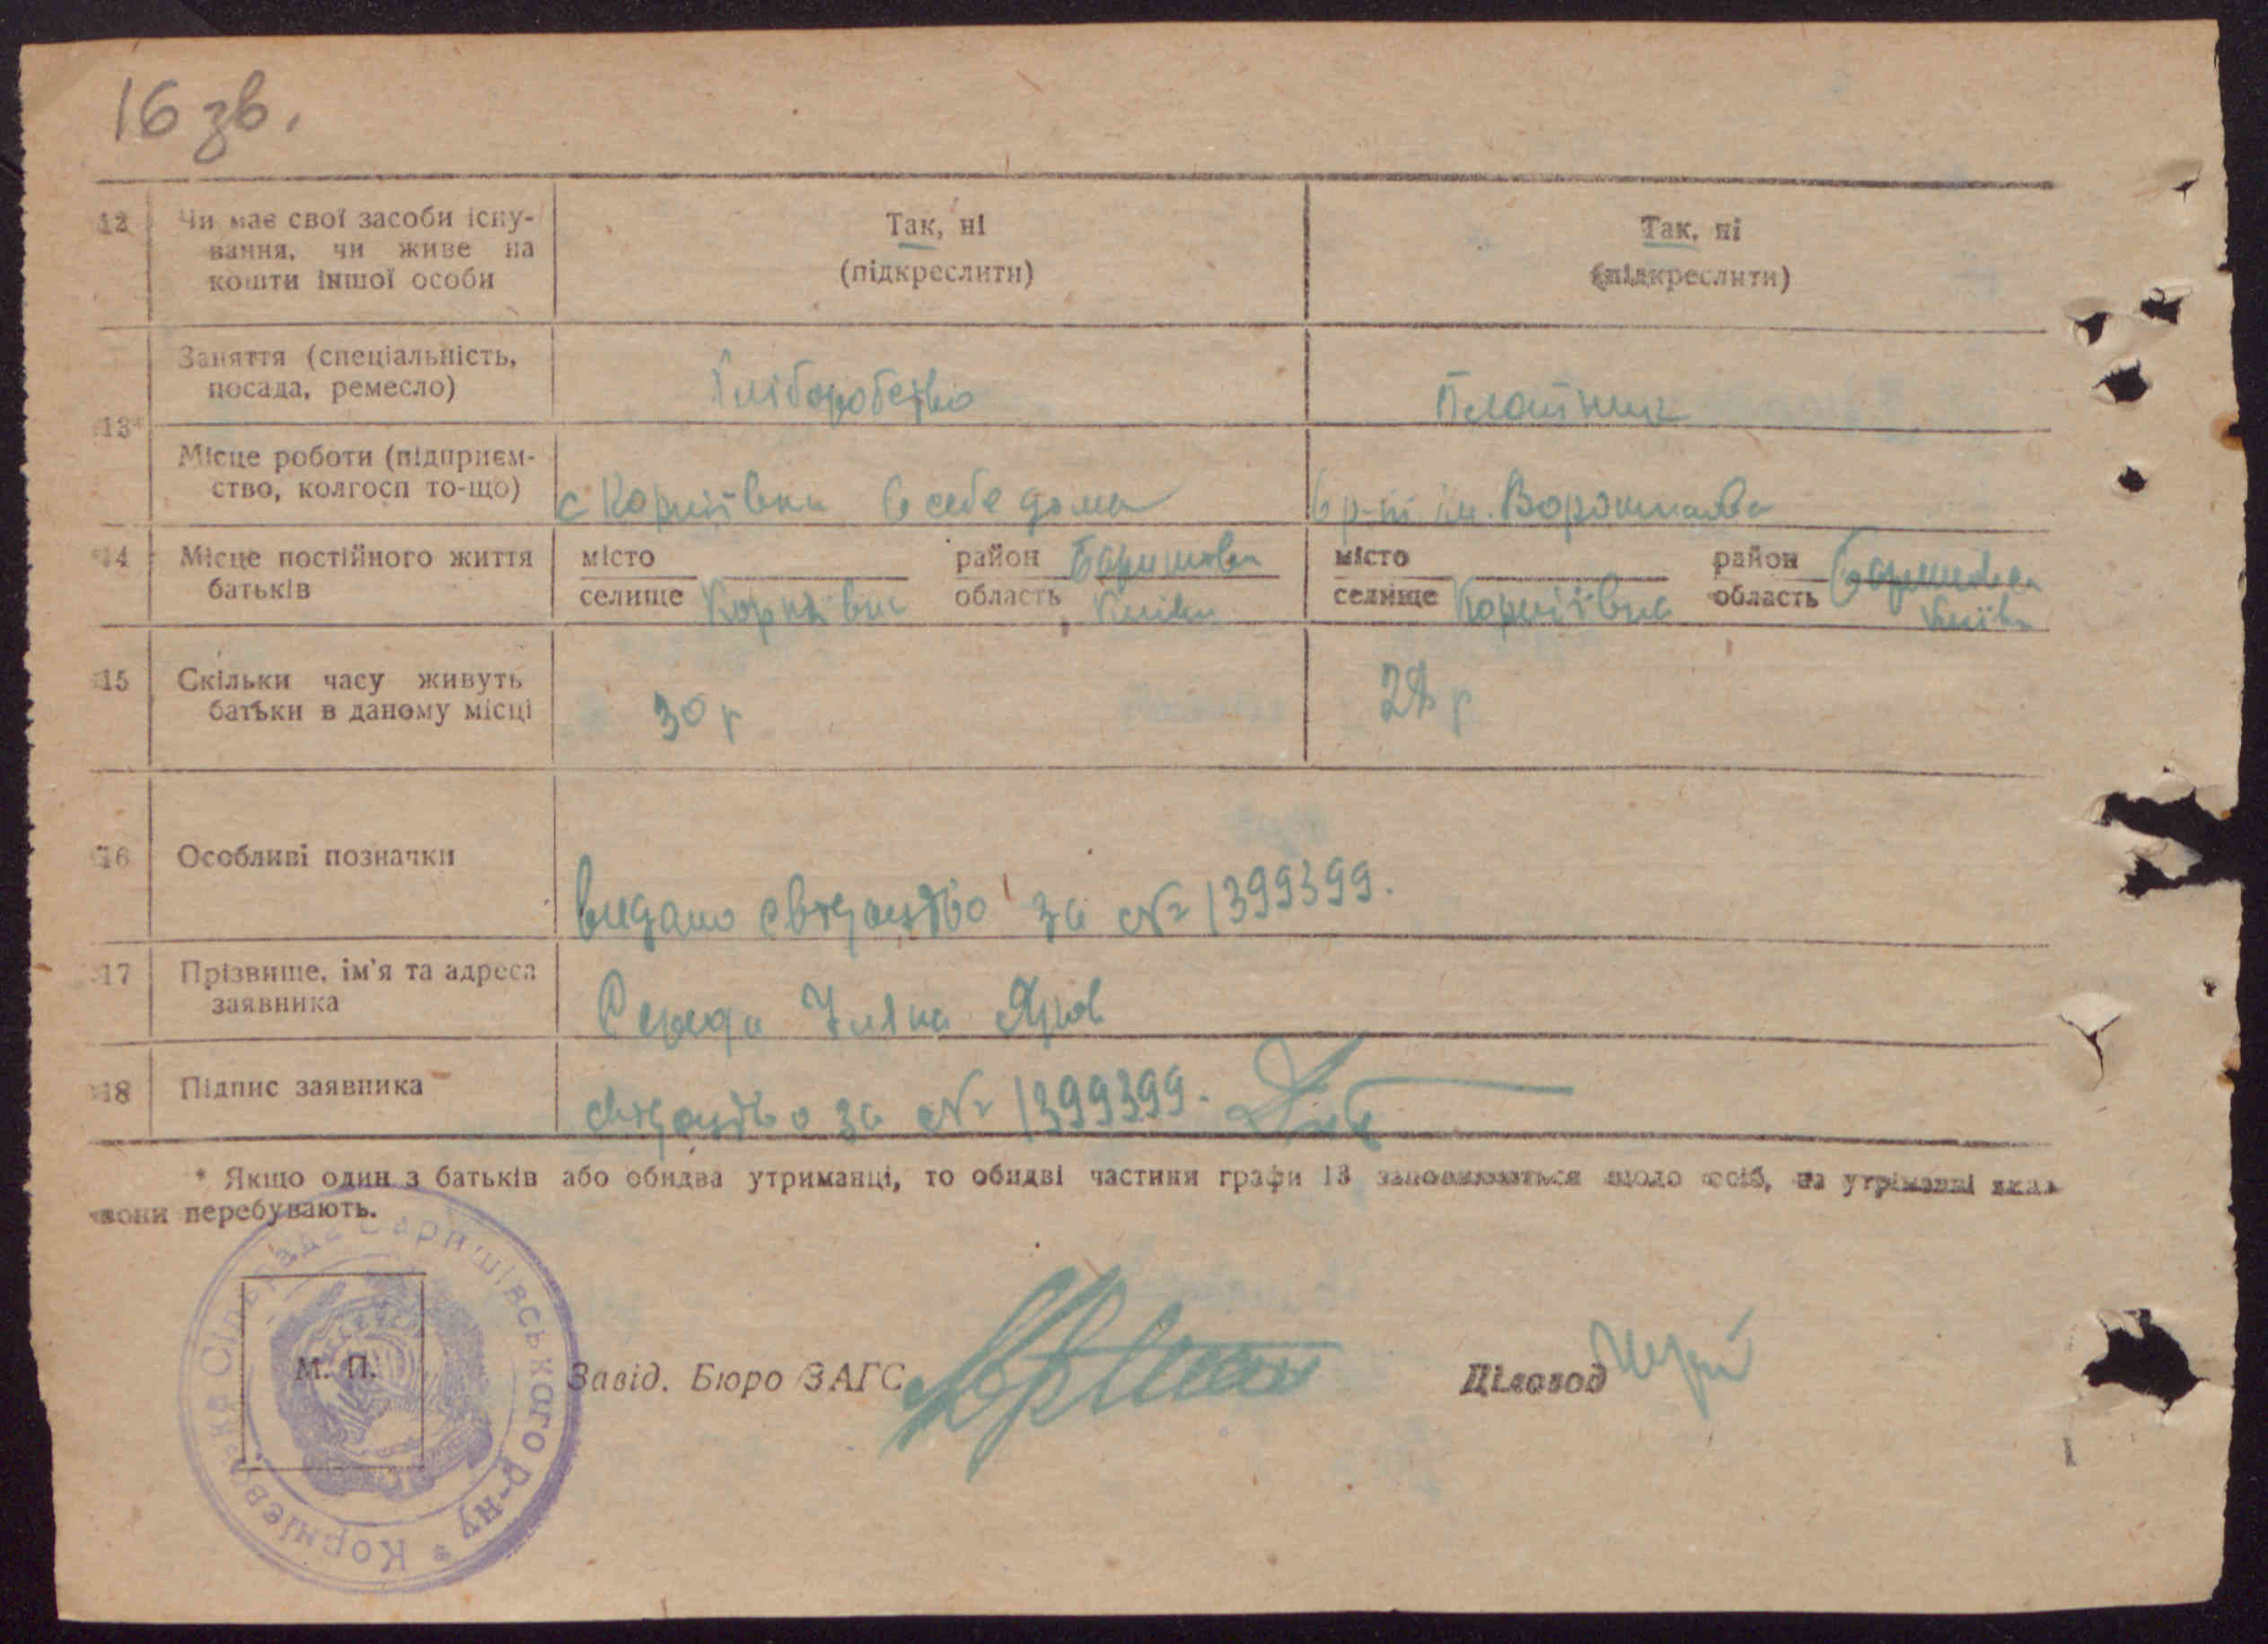 16 зв.
12 Чи має свої засоби існу-
вання, чи живе на
кошти іншої особи
Так, ні
(підкреслити)
Так, ні
(підкреслити)
13*
Заняття (спеціальність,
посада, ремесло)
Хліборобство
Плотник
Місце роботи (підприєм-
ство, колгосп то-що)
с Корніївка в себе дома
ім. Ворошилова
14 Місце постійного життя
батьків
місто район Баришівка
селище Корніївка область Київ
місто район Баришівка
селище Корніївка область Київ
15 Скільки часу живуть
батьки в даному місці
30 р
28 р
16 Особливі позначки
видано свідоцтво за № 1399399.
17 Прізвище, ім'я та адреса
заявника
Середа Уляна
18 Підпис заявника
свідоцтво за № 1399399.
* Якщо один з батьків або обидва утриманці, то обидві частини графи 13 заповнюються щодо осіб, на утриманні яких
вони перебувають.
М. П.
Завід. Бюро ЗАГС
Діловод
Корнієвська Сільрада Баришівського р-ну *